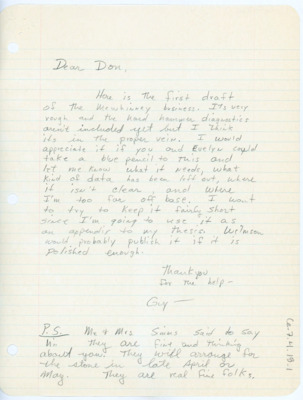 Dear Don,
Here is the first draft
of the Mowhinney business. It's very
rough and the hard hammer diagnostics
aren't included yet but I think
its in the proper vein. I would
appreciate it if you and Evelyn could
take a blue pencil to this and
let me know what it needs, what
kind of data has been left out, where
it isn't clear, and where
I'm too far off base. I want
to try to keep it fairly short
since I'm going to use it as
an appendix to my thesis.
would probably publish it if it is
polished enough.
Thank you
for the help-
Guy-
P.S. Mr & Mrs Sims said to say
Hi. They are fine and thinking
about you. They will arrange for
the stone in late April or
May. They are real fine folks.